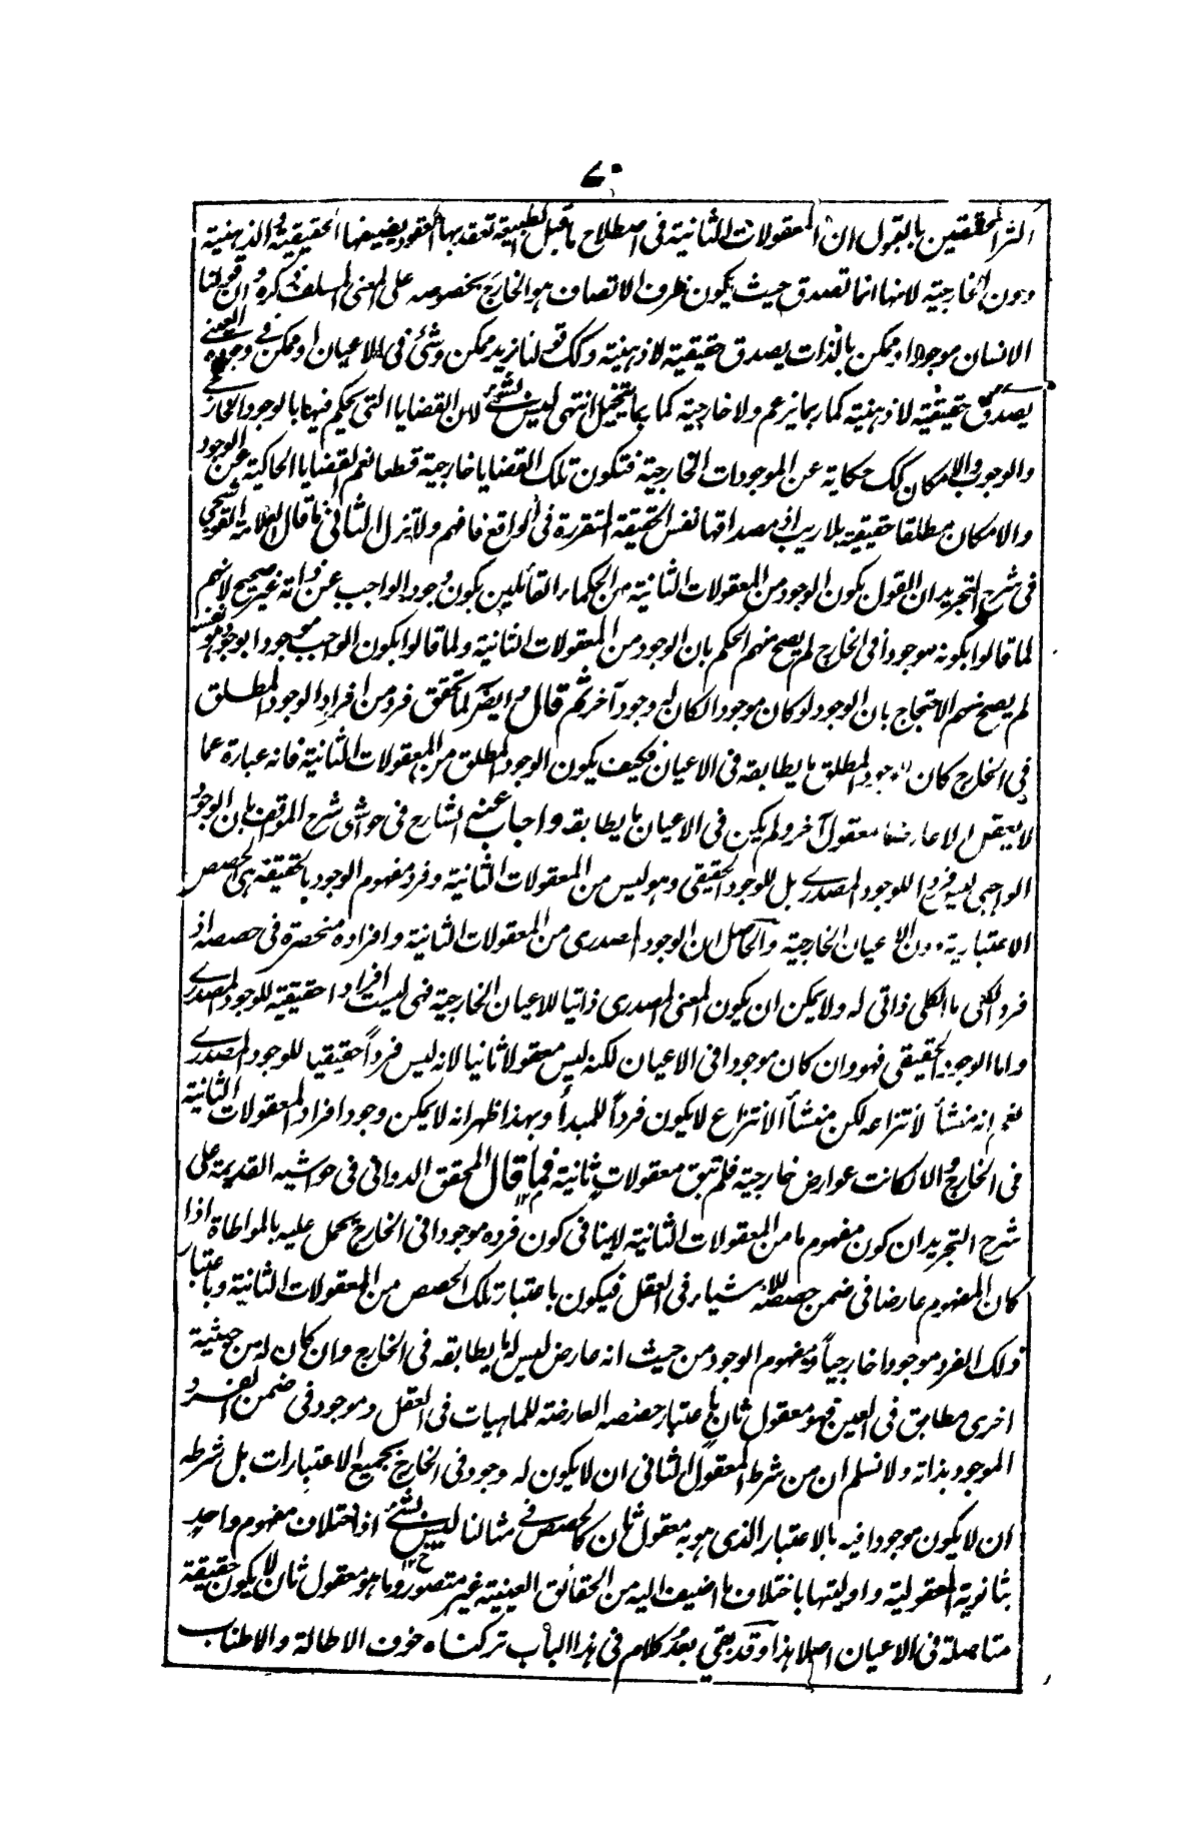 ٧٠
اكثر المحققين بالقول ان المعقولات الثانية فى اصطلاح ما قبل الطبيعة تعقد بها العقود بضيفها الحقيقية والذهنية
دون الخارجية لانها انما تصدق حيث يكون ظرف الاتصاف هو الخارج بخصوصه على المعنى المسلف ذكره ان قولنا
الانسان موجود او ممكن بالذات يصدق حقيقية لا ذهنية وكك قولنا زيد ممكن وشئ فى الاعيان او ممكن فى وجوده العينى
يصدق حقيقية لا ذهنية كما ربما يزعم ولا خارجية كما ربما يتخيل انتهى ليس بشئ لان القضايا التى يحكم فيها بالوجود الخارجى
والوجوب والامكان كك حكاية عن الموجودات الخارجية فتكون تلك القضايا خارجية قطعا نعم القضايا الحاكية عن الوجود
والامكان مطلقا حقيقية بلا ريب اذ مصداقها نفس الحقيقة المتقررة فى الواقع فافهم ولا تزل الثانى ما قال العلامة القوشجى
فى شرح التجريد ان القول بكون الوجود من المعقولات الثانية من الحكماء القائلين بكون وجود الواجب عين ذاته غير صحيح لانهم
لما قالوا بكونه موجودا فى الخارج لم يصح منهم الحكم بان الوجود من المعقولات الثانية ولما قالوا بكون الواجب موجودا بوجود هو نفسه
لم يصح منهم الاحتجاج بان الوجود لو كان موجودا لكان له وجود آخر ثم قال وايضا لما تحقق فرد من افراد الوجود المطلق
فى الخارج كان للوجود المطلق ما يطابقه فى الاعيان فكيف يكون الوجود المطلق من المعقولات الثانية فانه عبارة عما
لا يعقل الا عارضا لمعقول آخر ولم يكن فى الاعيان ما يطابقه واجاب عنه الشارح فى حواشى شرح المواقف بان الوجود
الواجبى ليس فردا للوجود المصدرى بل للوجود الحقيقى وهو ليس من المعقولات الثانية وفرد مفهوم الوجود بالحقيقة هى الحصص
الاعتبارية دون الاعيان الخارجية والحاصل ان الوجود المصدرى من المعقولات الثانية وافراده منحصرة فى حصصه اذ
فرد الكلى ما الكلى ذاتى له ولا يمكن ان يكون المعنى المصدرى ذاتيا للاعيان الخارجية فهى ليست افرادا حقيقية للوجود المصدرى
واما الوجود الحقيقى فهو وان كان موجودا فى الاعيان لكنه ليس معقولا ثانيا لانه ليس فرداً حقيقيا للوجود المصدرى
نعم انه منشأ لانتزاعه لكن منشأ الانتزاع لا يكون فرداً للمبدأ وبهذا ظهر انه لا يمكن وجود افراد المعقولات الثانية
فى الخارج والا لكانت عوارض خارجية فلم تبق معقولات ثانية فما قال المحقق الدوانى فى حواشيه القديمة على
شرح التجريد ان كون مفهوم ما من المعقولات الثانية لا ينافى كون فرده موجودا فى الخارج يحمل عليه بالمواطاة اذا
كان المفهوم عارضا فى ضمن حصصه للاشياء فى العقل فيكون باعتبار تلك الحصص من المعقولات الثانية وباعتبار
ذلك الفرد موجودا خارجياً ومفهوم الوجود من حيث انه عارض ليس له ما يطابقه فى الخارج وان كان له من حيثية
اخرى مطابق فى العين فهو معقول ثان باعتبار حصصه العارضة للماهيات فى العقل وموجود فى ضمن الفرد
الموجود بذاته ولا نسلم ان من شرط المعقول الثانى ان لا يكون له وجود فى الخارج بجميع الاعتبارات بل شرطه
ان لا يكون موجودا فيه بالاعتبار الذى هو به معقول ثان كالحصص فى مثالنا ليس بشئ اذ اختلاف مفهوم واحد
بثانوية المعقولية واوليتها باختلاف ما اضيف اليه من الحقائق العينية غير متصور وما هو معقول ثان لا يكون حقيقة
متاصلة فى الاعيان اصلا هذا وقد بقى بعد كلام فى هذا الباب تركناه خوف الاطالة والاطناب